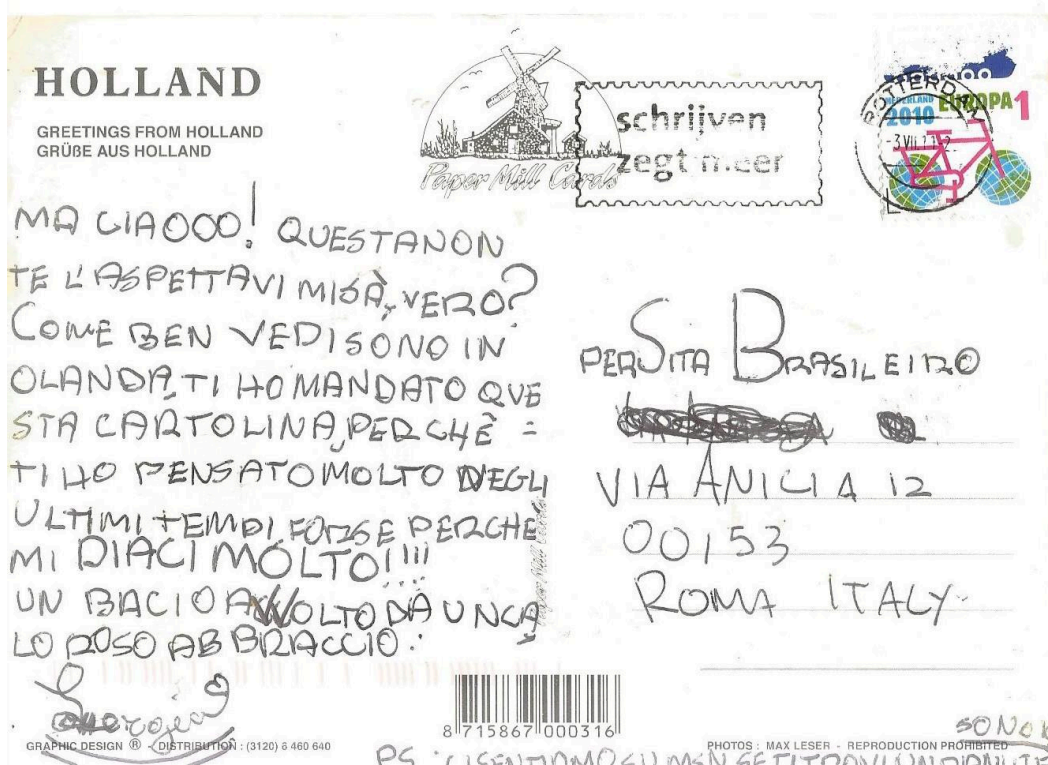 HOLLAND
GREETINGS FROM HOLLAND
GRÜßE AUS HOLLAND
Paper Mill Cards
schrijven
zegt meer
ROTTERDAM
NEDERLAND
2010
EUROPA 1
MA CIAOOO! QUESTA NON
TE L'ASPETTAVI MISÀ, VERO?
COME BEN VEDI SONO IN
OLANDA, TI HO MANDATO QUE
STA CARTOLINA, PERCHÈ =
TI HO PENSATO MOLTO NEGLI
ULTIMI TEMPI FORSE PERCHÈ
MI PIACI MOLTO!!!
UN BACIO AVVOLTO DA UN CA
LOROSO ABBRACCIO.
PER SITA BRASILEIRO
VIA ANICIA 12
00153
ROMA ITALY
Paper Mill Cards
8 715867 000316
GRAPHIC DESIGN ® - DISTRIBUTION : (3120) 6 460 640
PHOTOS : MAX LESER - REPRODUCTION PROHIBITED
SONO
PS: CI SENTIAMO SU MSN SE TI TROVI UN